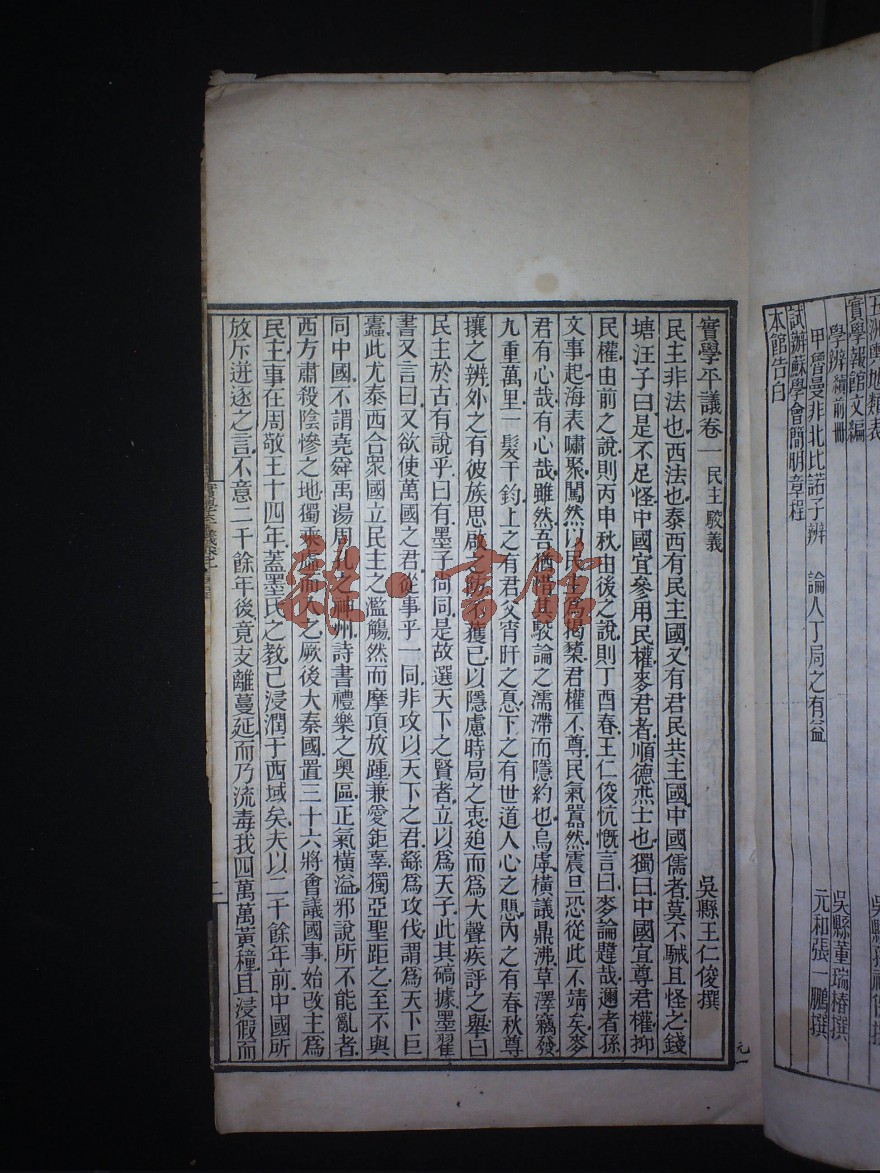 五洲輿地類表
實學報館文編
學辨續前冊 吳縣孫福保撰
甲曾曼非北比諾子辨 論人丁局之有益 吳縣董瑞椿撰
試辦蘇學會簡明章程 元和張一鵬撰
本館告白
實學平議卷一 民主駁義 吳縣王仁俊撰
民主非法也西法也泰西有民主國又有君民共主國中國儒者莫不駴且怪之錢
塘汪子曰是不足怪中國宜參用民權麥君者順德烝士也獨曰中國宜尊君權抑
民權由前之說則丙申秋由後之說則丁酉春王仁俊忼慨言曰麥論韙哉邇者孫
文事起海表嘯聚闖然以民主為揭櫫君權不尊民氣囂然震旦恐從此不靖矣麥
君有心哉有心哉雖然吾猶惜其駁論之濡滯而隱約也烏虖橫議鼎沸草澤竊發
九重萬里一髮千鈞上之有君父宵旰之息下之有世道人心之惎內之有春秋尊
攘之辨外之有彼族思啟之防不獲已以隱慮時局之衷廹而為大聲疾評之舉曰
民主於古有說乎曰有墨子尙同是故選天下之賢者立以為天子此其碻據墨翟
書又言曰又欲使萬國之君從事乎一同非攻以天下之君繇為攻伐謂為天下巨
蠹此尤泰西合衆國立民主之濫觴然而摩頂放踵兼愛鉅辜獨亞聖距之至不與
同中國不謂堯舜禹湯周孔之神州詩書禮樂之奧區正氣橫溢邪說所不能亂者
西方肅殺陰慘之地獨乘虛而入之厥後大秦國置三十六將會議國事始改主為
民主事在周敬王十四年蓋墨氏之教已浸潤于西域矣夫以二千餘年前中國所
放斥迸逐之言不意二千餘年後竟支離蔓延而乃流毒我四萬萬黃種且浸假而
實學平議卷一
二
元一